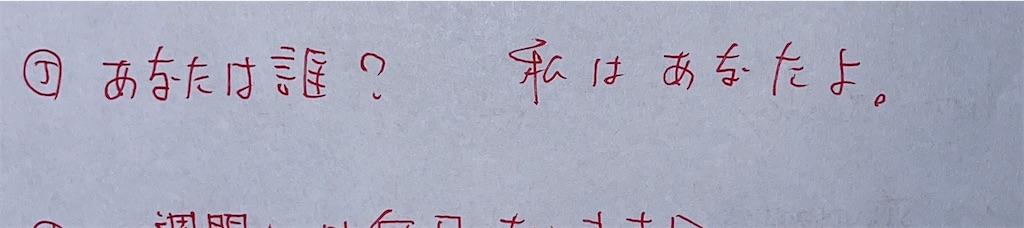 Ⓙ あなたは誰? 私はあなたよ。